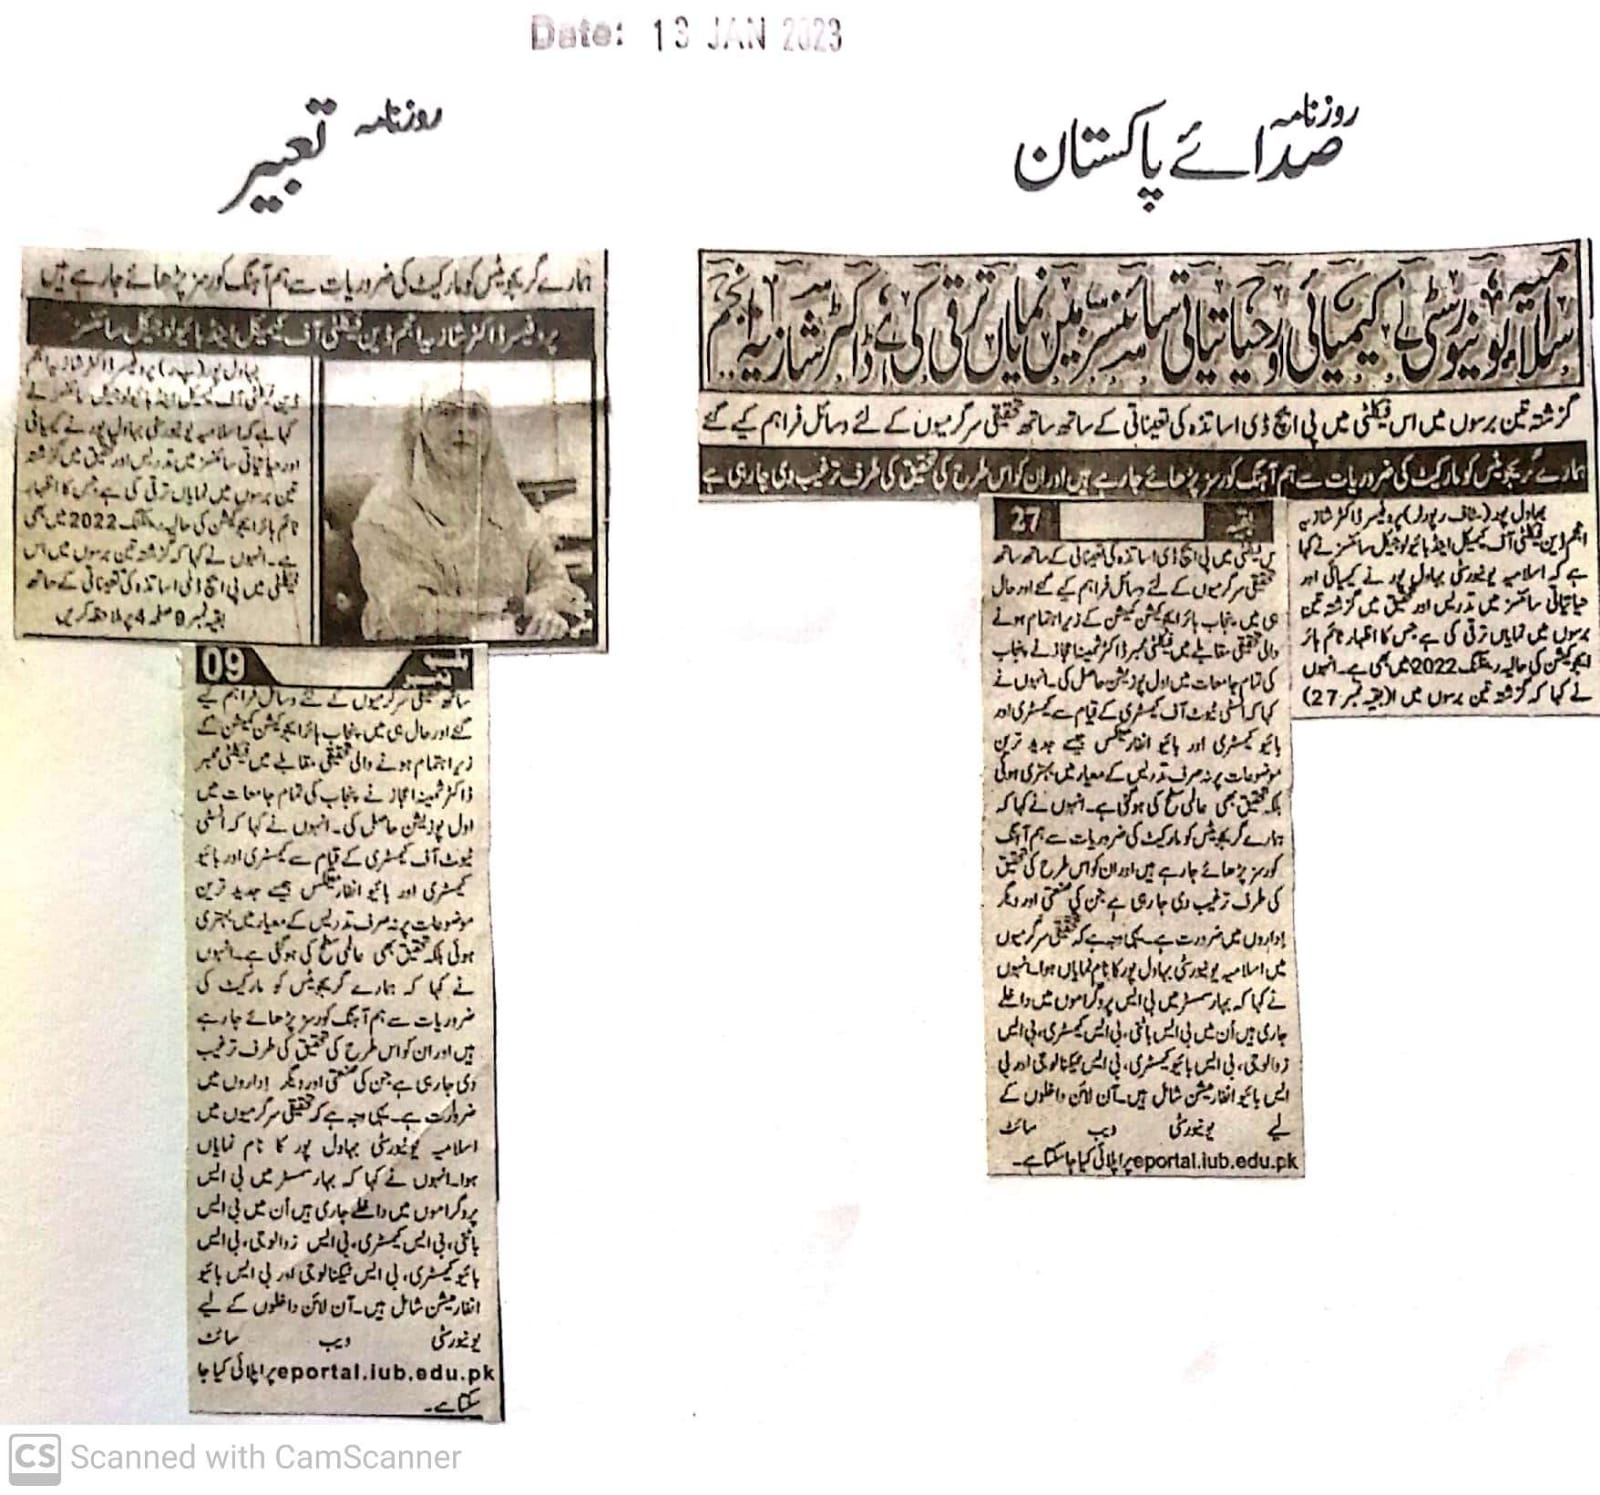 Date: 13 JAN 2023
روزنامہ
صدائے پاکستان
اسلامیہ یونیورسٹی نے کیمیائی اور حیاتیاتی سائنسز میں نمایاں ترقی کی ہے، ڈاکٹر شازیہ انجم
گزشتہ تین برسوں میں اس فیکلٹی میں پی ایچ ڈی اساتذہ کی تعیناتی کے ساتھ ساتھ تحقیقی سرگرمیوں کے لئے وسائل فراہم کیے گئے
ہمارے گریجویٹس کو مارکیٹ کی ضروریات سے ہم آہنگ کورسز پڑھائے جا رہے ہیں اور ان کو اس طرح کی تحقیق کی طرف ترغیب دی جا رہی ہے
بہاول پور (سٹاف رپورٹر) پروفیسر ڈاکٹر شازیہ
انجم ڈین فیکلٹی آف کیمیکل اینڈ بائیولوجیکل سائنسز نے کہا
ہے کہ اسلامیہ یونیورسٹی بہاول پور نے کیمیائی اور
حیاتیاتی سائنسز میں تدریس اور تحقیق میں گزشتہ تین
برسوں میں نمایاں ترقی کی ہے جس کا اظہار ٹائم ہائر
ایجوکیشن کی حالیہ رینکنگ 2022 میں بھی ہے۔ انہوں
نے کہا کہ گزشتہ تین برسوں میں (بقیہ نمبر 27)
بقیہ 27
س فیکلٹی میں پی ایچ ڈی اساتذہ کی تعیناتی کے ساتھ ساتھ
تحقیقی سرگرمیوں کے لئے وسائل فراہم کیے گئے اور حال
ہی میں پنجاب ہائر ایجوکیشن کمیشن کے زیر اہتمام ہونے
والی تحقیقی مقابلے میں فیکلٹی ممبر ڈاکٹر ثمینہ اعجاز نے پنجاب
کی تمام جامعات میں اول پوزیشن حاصل کی۔ انہوں نے
کہا کہ انسٹی ٹیوٹ آف کیمسٹری کے قیام سے کیمسٹری اور
بائیو کیمسٹری اور بائیو انفارمیٹکس جیسے جدید ترین
موضوعات پر نہ صرف تدریس کے معیار میں بہتری ہوئی
بلکہ تحقیق بھی عالمی سطح کی ہو گئی ہے۔ انہوں نے کہا کہ
ہمارے گریجویٹس کو مارکیٹ کی ضروریات سے ہم آہنگ
کورسز پڑھائے جا رہے ہیں اور ان کو اس طرح کی تحقیق
کی طرف ترغیب دی جا رہی ہے جن کی صنعتی اور دیگر
اداروں میں ضرورت ہے۔ یہی وجہ ہے کہ تحقیقی سرگرمیوں
میں اسلامیہ یونیورسٹی بہاول پور کا نام نمایاں ہوا۔ انہوں
نے کہا کہ بہار سمسٹر میں بی ایس پروگراموں میں داخلے
جاری ہیں اُن میں بی ایس باٹنی، بی ایس کیمسٹری، بی ایس
زوالوجی، بی ایس بائیو کیمسٹری، بی ایس ٹیکنالوجی اور بی
ایس بائیو انفارمیشن شامل ہیں۔ آن لائن داخلوں کے
لیے یونیورسٹی ویب سائٹ
eportal.iub.edu.pk پر اپلائی کیا جا سکتا ہے۔
روزنامہ تعبیر
ہمارے گریجویٹس کو مارکیٹ کی ضروریات سے ہم آہنگ کورسز پڑھائے جا رہے ہیں
پروفیسر ڈاکٹر شازیہ انجم ڈین فیکلٹی آف کیمیکل اینڈ بائیولوجیکل سائنسز
بہاول پور پروفیسر ڈاکٹر شازیہ انجم
ڈین فیکلٹی آف کیمیکل اینڈ بائیولوجیکل سائنسز نے
کہا ہے کہ اسلامیہ یونیورسٹی بہاول پور نے کیمیائی
اور حیاتیاتی سائنسز میں تدریس اور تحقیق میں گزشتہ
تین برسوں میں نمایاں ترقی کی ہے جس کا اظہار
ٹائم ہائر ایجوکیشن کی حالیہ رینکنگ 2022 میں بھی
ہے۔ انہوں نے کہا کہ گزشتہ تین برسوں میں اس
فیکلٹی میں پی ایچ ڈی اساتذہ کی تعیناتی کے ساتھ
بقیہ نمبر 9 صفحہ 4 پر ملاحظہ کریں
بقیہ نمبر 09
ساتھ تحقیقی سرگرمیوں کے لئے وسائل فراہم کیے
گئے اور حال ہی میں پنجاب ہائر ایجوکیشن کمیشن کے
زیر اہتمام ہونے والی تحقیقی مقابلے میں فیکلٹی ممبر
ڈاکٹر ثمینہ اعجاز نے پنجاب کی تمام جامعات میں
اول پوزیشن حاصل کی۔ انہوں نے کہا کہ انسٹی
ٹیوٹ آف کیمسٹری کے قیام سے کیمسٹری اور بائیو
کیمسٹری اور بائیو انفارمیٹکس جیسے جدید ترین
موضوعات پر نہ صرف تدریس کے معیار میں بہتری
ہوئی بلکہ تحقیق بھی عالمی سطح کی ہو گئی ہے۔ انہوں
نے کہا کہ ہمارے گریجویٹس کو مارکیٹ کی
ضروریات سے ہم آہنگ کورسز پڑھائے جا رہے
ہیں اور ان کو اس طرح کی تحقیق کی طرف ترغیب
دی جا رہی ہے جن کی صنعتی اور دیگر اداروں میں
ضرورت ہے۔ یہی وجہ ہے کہ تحقیقی سرگرمیوں میں
اسلامیہ یونیورسٹی بہاول پور کا نام نمایاں
ہوا۔ انہوں نے کہا کہ بہار سمسٹر میں بی ایس
پروگراموں میں داخلے جاری ہیں اُن میں بی ایس
باٹنی، بی ایس کیمسٹری، بی ایس زوالوجی، بی ایس
بائیو کیمسٹری، بی ایس ٹیکنالوجی اور بی ایس بائیو
انفارمیشن شامل ہیں۔ آن لائن داخلوں کے لیے
یونیورسٹی ویب سائٹ
eportal.iub.edu.pk پر اپلائی کیا جا
سکتا ہے۔
CS Scanned with CamScanner